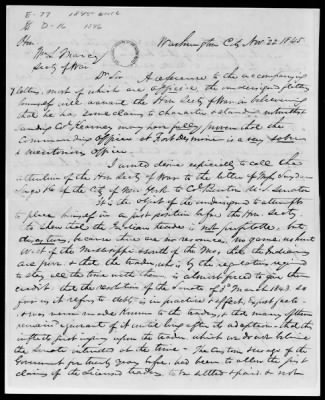 E-77 1845 encl
D-16 1846
Washington City Nov. 22. 1845
Hon
Wm L. Marcy
Secty of War
Dr Sir A reference to the accompanying
7 letters, most of which are official, the undersigned flatters
himself will warrant the Hon. Secty of War in believing
that he has some claims to character & standing notwithst
anding Col Kearney may have fully proven that the
Commanding Officer at Fort Desmoine is a very sober
& meritorious officer.
I would desire especially to call the
attention of the Hon Secty of War to the letter of
of the City of New York to Col Benton U.S. Senator
It is the object of the undersigned to attempt
to place himself in a just position before the Hon. Secty.
to shew that the Indian trade is not profitable. but
because there are no resources, no game, w hunt
West of the Mississippi & south of the Mo, that the Indians
are poor & that the trader, who is by the regulations required
to stay all the time with them, is almost forced to give them
credit that the resolution of the Senate of 3d March 1843. so
far as it refers to debts is in practice & effect,
& was never made known to the traders, & that many of them
remained ignorant of it until long after its adoption - that the
in its first upon the traders which we do not believe
the Senate intended at the time - The custom & usage of the
Government for twenty years before, had been to allow the just
claims of the licensed traders to be settled & paid & not